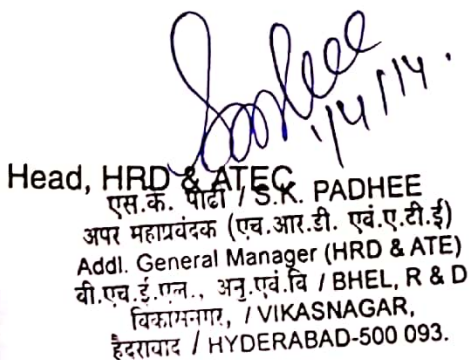 1/4/14.
Head, HRD & ATEC
एस.के. पाढी / S.K. PADHEE
अपर महाप्रवंदक (एच.आर.डी. एवं.ए.टी.ई)
Addl. General Manager (HRD & ATE)
बी.एच.ई.एल., अनु.एवं.वि / BHEL, R & D
विकासनगर, / VIKASNAGAR,
हैदरावाद / HYDERABAD-500 093.